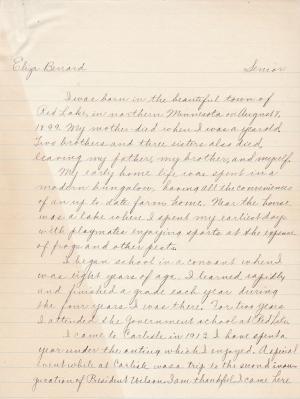 Eliza Benard Senior
I was born in the beautiful town of
Red Lake, in northern Minnesota on August 8,
1899. My mother died when I was a year old
Two brothers and three sisters also died,
leaving my father, my brother, and myself.
My early home life was spent in a
modern bungalow, having all the conveniences
of an up to date farm home. Near the house
was a lake where I spent my earliest days
with playmates enjoying sports at the expense
of frogs and other pests.
I began school in a convent when I
was eight years of age. I learned rapidly
and finished a grade each year during
the four years I was there. For two years
I attended the Government school at Red Lake
I came to Carlisle in 1912 I have spent a
year under the outing which I enjoyed. A special
event while at Carlisle was a trip to the second inau-
guration of President Wilson. I am thankful I came here